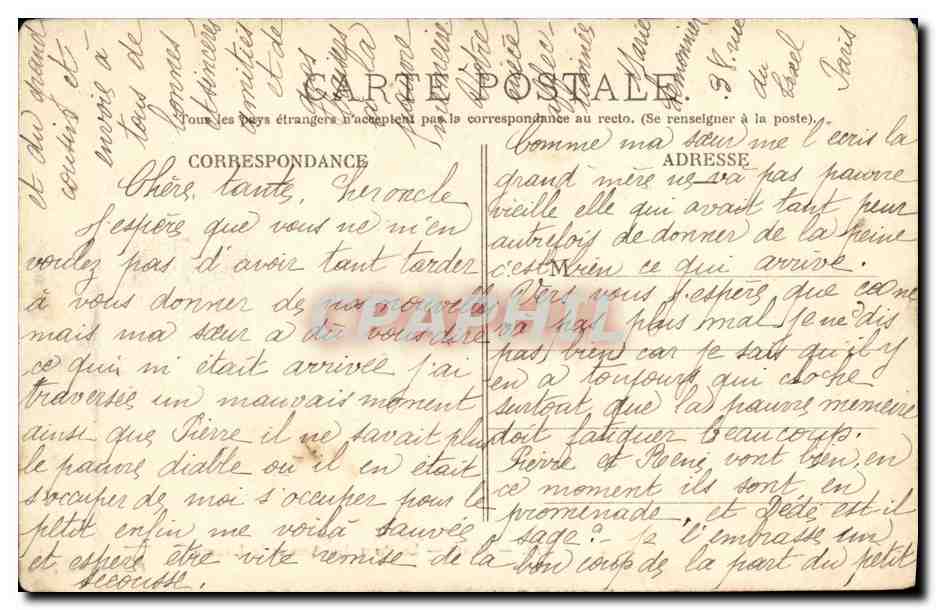 CARTE POSTALE.
Tous les pays étrangers n'acceptent pas la correspondance au recto. (Se renseigner à la poste).
CORRESPONDANCE
Chère tante, cher oncle
J'espère que vous ne m'en
voulez pas d'avoir tant tarder
à vous donner de nos nouvelles
mais ma sœur a dû vous dire
ce qui m'était arrivée j'ai
traversée un mauvais moment
ainsi que Pierre il ne savait plus
le pauvre diable où il en était
s'occuper de moi s'occuper pour le
petit enfin me voilà sauvée
et espère être vite remise de la
secousse.
ADRESSE
M
Comme ma sœur me l'ecris la
grand mère ne va pas pauvre
vieille elle qui avait tant peur
autrefois de donner de la peine
c'est bien ce qui arrive.
Vers vous j'espère que ca ne
va pas plus mal je ne dis
pas bien car je sais qu'il y
en a toujours qui cloche
surtout que la pauvre memeire
doit fatiguer beaucoup.
Pierre et René vont bien, en
ce moment ils sont en
promenade, et Dédé est-il
sage? - je l'embrasse un
bon coup de la part du petit
et du grand
cousins et
envoie à
tous de
bonnes
et sincères
amitiés
et de
gros
baisers
à la
pauvre
memeire
Votre
nièce
affec-
tionnée
Marie
38 rue
du
Paris
CPAPHIL